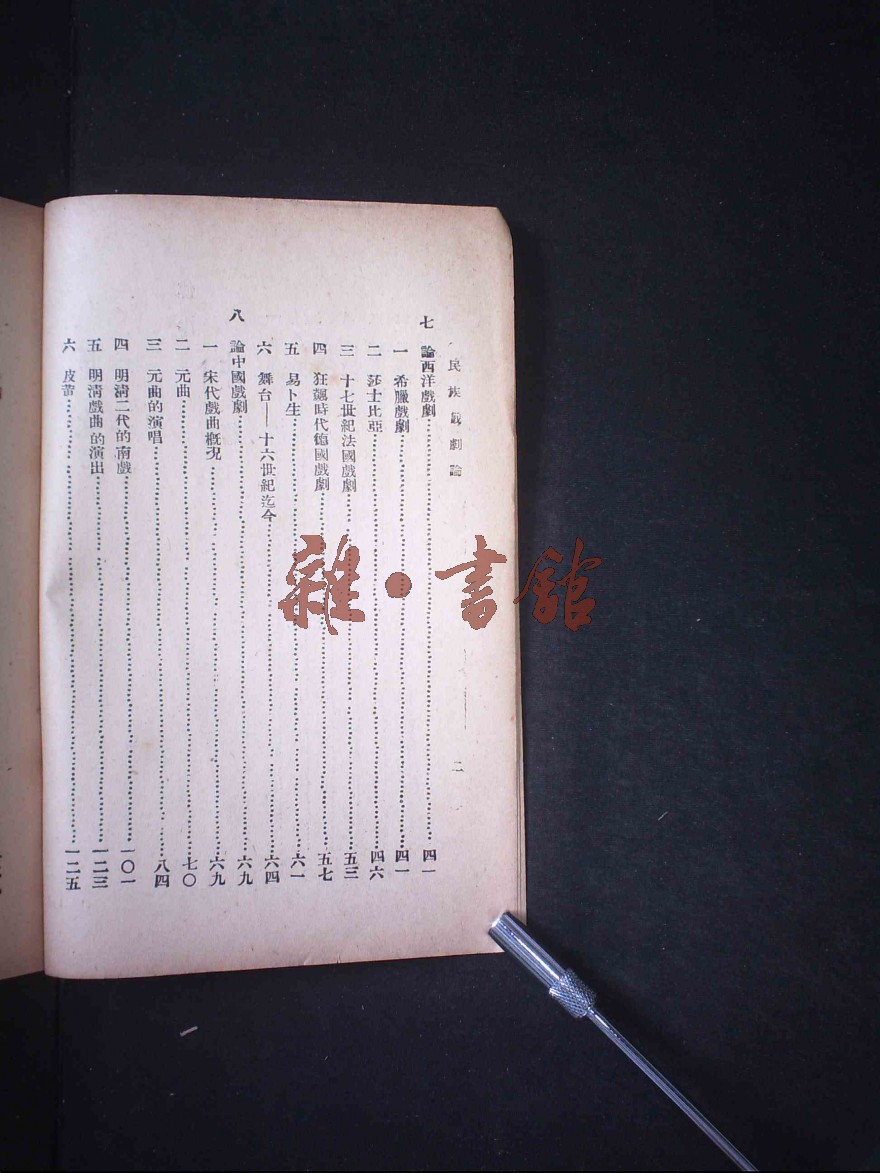 民族戲劇論
二
七　論西洋戲劇……四一
一　希臘戲劇……四一
二　莎士比亞……四六
三　十七世紀法國戲劇……五三
四　狂飆時代德國戲劇……五七
五　易卜生……六一
六　舞台——十六世紀迄今……六四
八　論中國戲劇……六九
一　宋代戲曲概況……六九
二　元曲……七〇
三　元曲的演唱……八四
四　明清二代的南戲……一〇一
五　明清戲曲的演出……一二三
六　皮黃……一二五
雜·書館